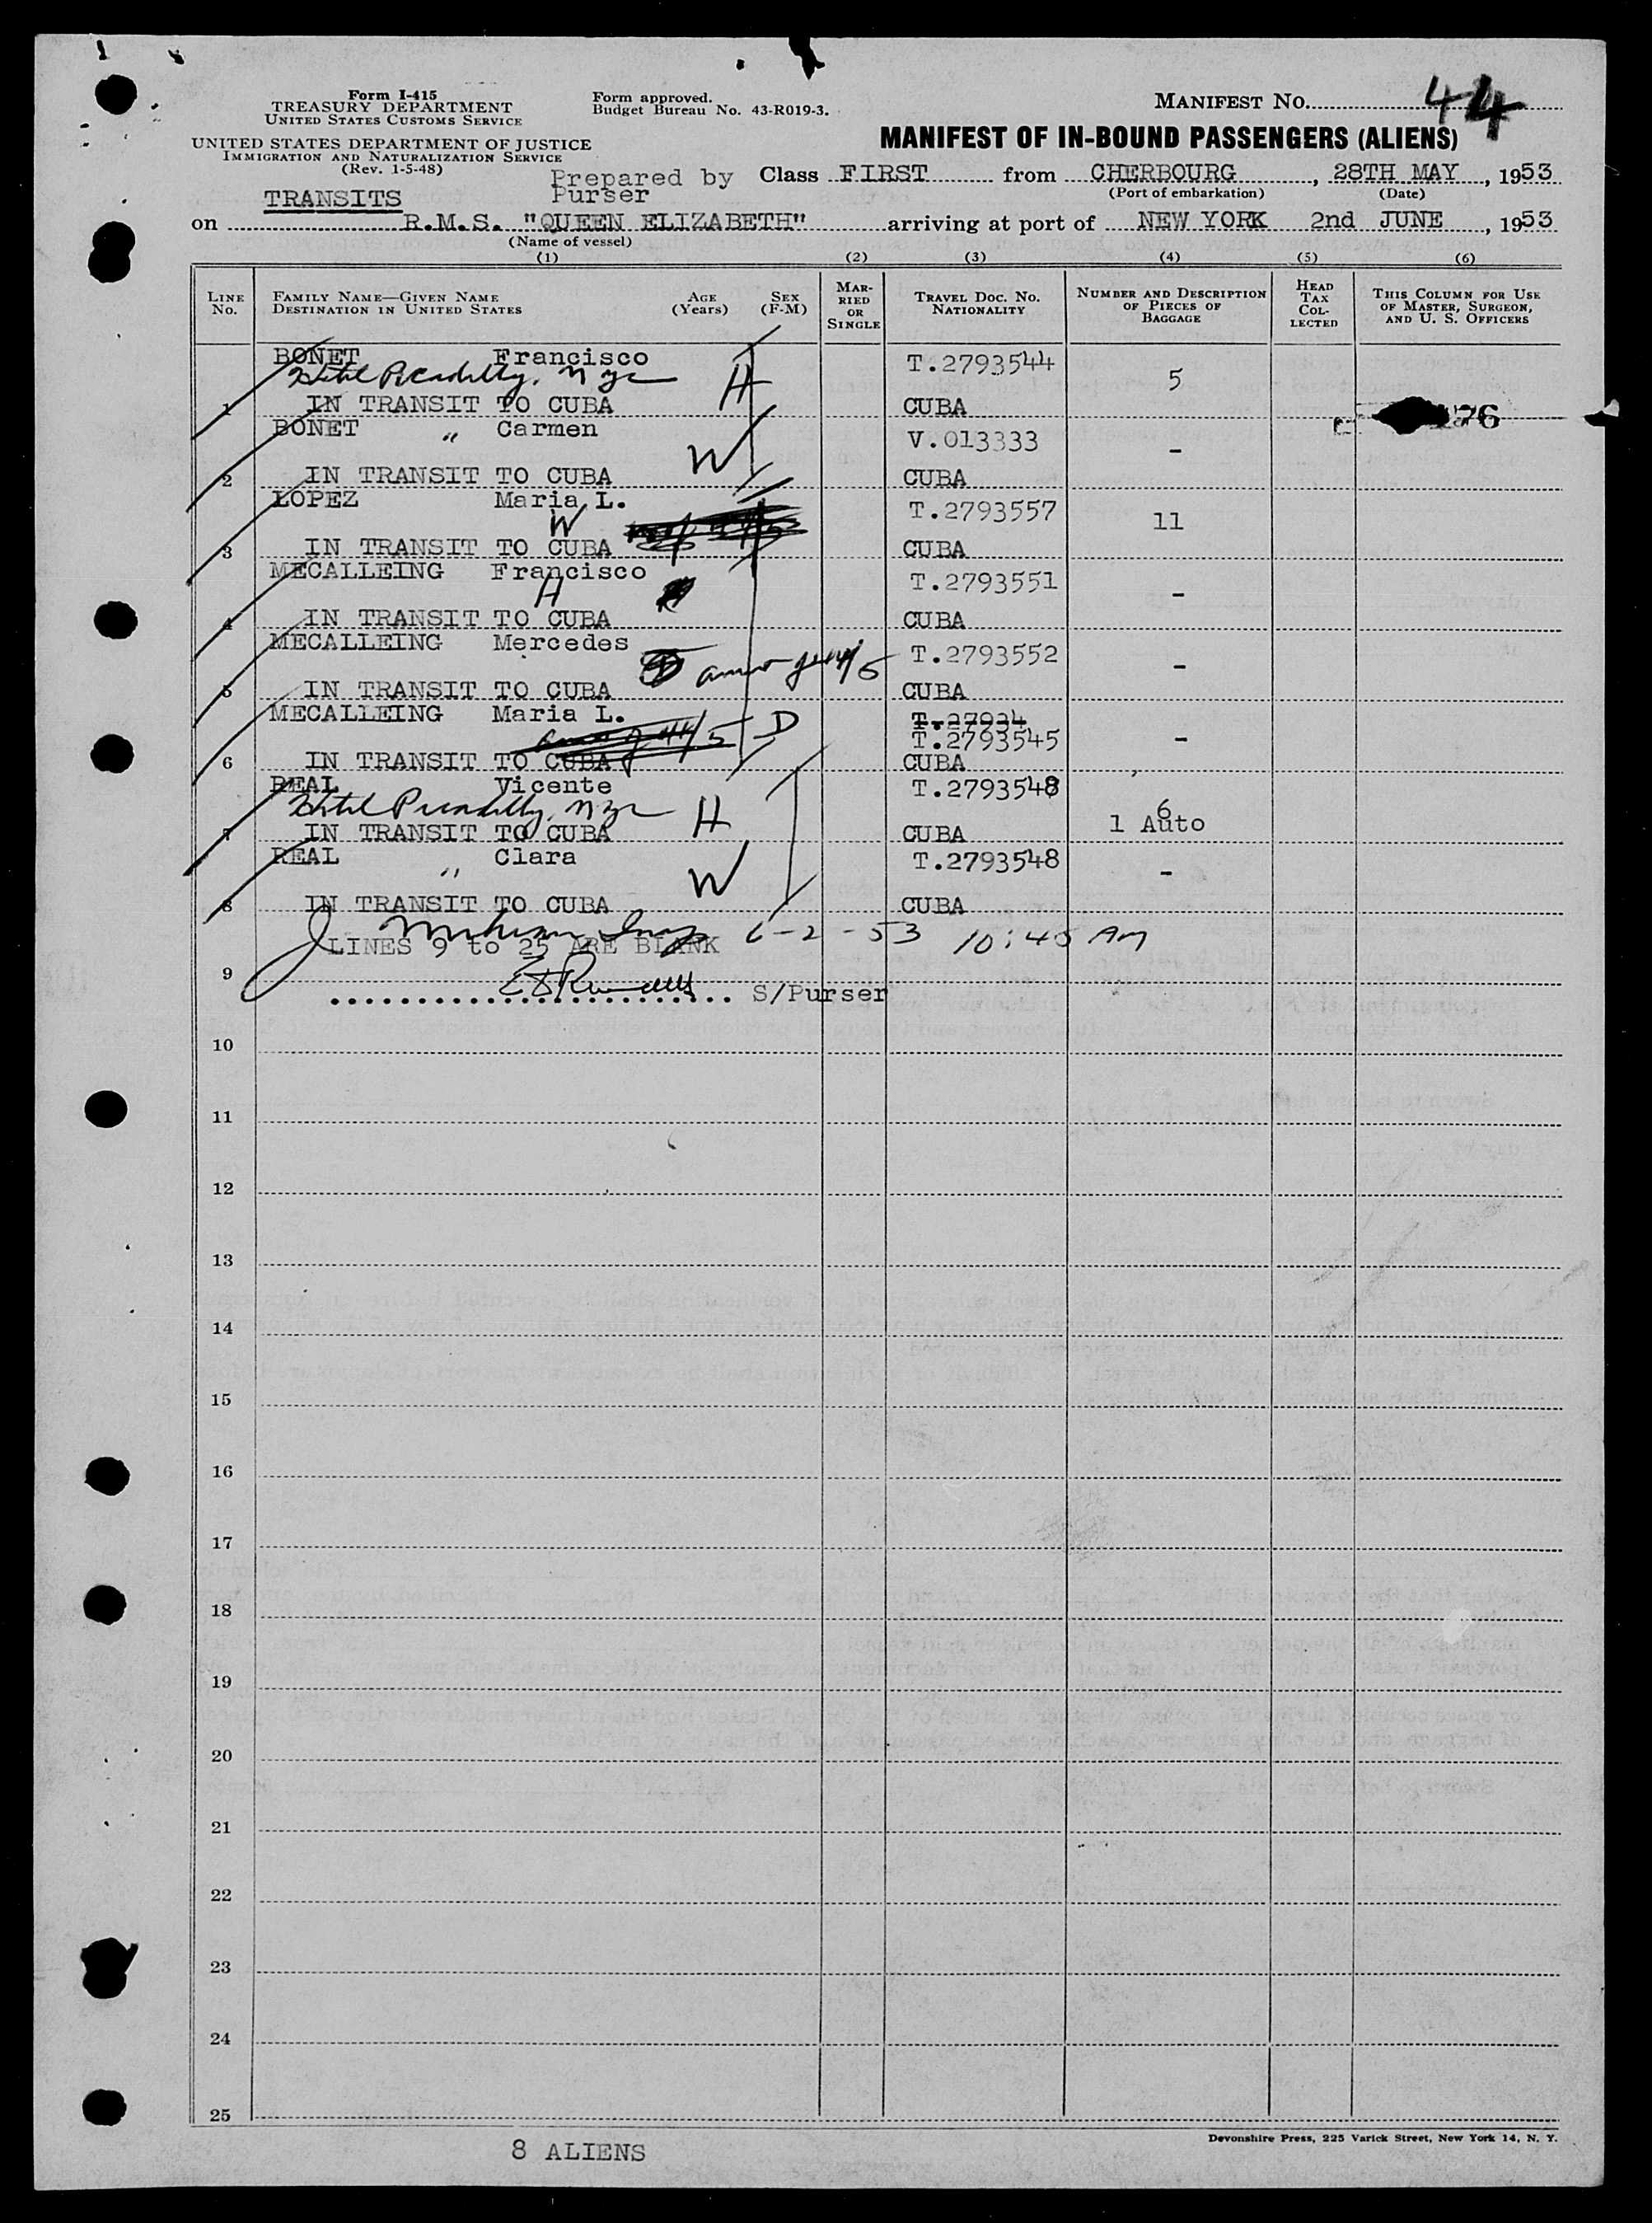 Form I-415
TREASURY DEPARTMENT
UNITED STATES CUSTOMS SERVICE
UNITED STATES DEPARTMENT OF JUSTICE
IMMIGRATION AND NATURALIZATION SERVICE
(Rev. 1-5-48)
Form approved.
Budget Bureau No. 43-R019-3.
MANIFEST NO. 44
MANIFEST OF IN-BOUND PASSENGERS (ALIENS)
Prepared by Purser
Class FIRST from CHERBOURG, 28TH MAY, 1953
(Port of embarkation) (Date)
TRANSITS
on R.M.S. "QUEEN ELIZABETH" arriving at port of NEW YORK 2nd JUNE, 1953
(Name of vessel)
(1) (2) (3) (4) (5) (6)
LINE NO. FAMILY NAME—GIVEN NAME DESTINATION IN UNITED STATES AGE (Years) SEX (F-M) MARRIED OR SINGLE TRAVEL DOC. NO. NATIONALITY NUMBER AND DESCRIPTION OF PIECES OF BAGGAGE HEAD TAX COLLECTED THIS COLUMN FOR USE OF MASTER, SURGEON, AND U. S. OFFICERS
BONET Francisco T.2793544
Hotel Picadilly, NYC H 5
1 IN TRANSIT TO CUBA CUBA 76
BONET " Carmen V.013333
W -
2 IN TRANSIT TO CUBA CUBA
LOPEZ Maria L. T.2793557
W 11
3 IN TRANSIT TO CUBA CUBA
MECALLEING Francisco T.2793551
H -
4 IN TRANSIT TO CUBA CUBA
MECALLEING Mercedes T.2793552
-
5 IN TRANSIT TO CUBA CUBA
MECALLEING Maria L. T.27934
D T.2793545 -
6 IN TRANSIT TO CUBA CUBA
REAL Vicente T.2793548
Hotel Picadilly, NYC H 6
7 IN TRANSIT TO CUBA CUBA 1 Auto
REAL " Clara T.2793548
W -
8 IN TRANSIT TO CUBA CUBA
6-2-53 10:45 AM
LINES 9 to 25 ARE BLANK
9
S/Purser
10
11
12
13
14
15
16
17
18
19
20
21
22
23
24
25
Devonshire Press, 225 Varick Street, New York 14, N. Y.
8 ALIENS